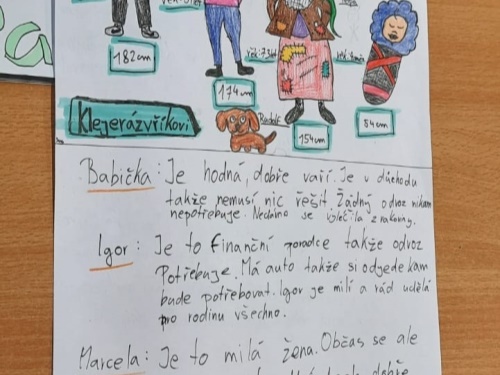 182cm
174cm
154cm
54cm
Rudolf
Klejerázvříkovi
Babička: Je hodná, dobře vaří. Je v důchodu
takže nemusí nic řešit. Žádný odvoz nikam
nepotřebuje. Nedávno se vyléčila z rakoviny.
Igor: Je to finanční poradce takže odvoz
Potřebuje. Má auto takže si odjede kam
bude potřebovat. Igor je milí a rád udělá
pro rodinu všechno.
Marcela: Je to milá žena. Občas se ale
dobře